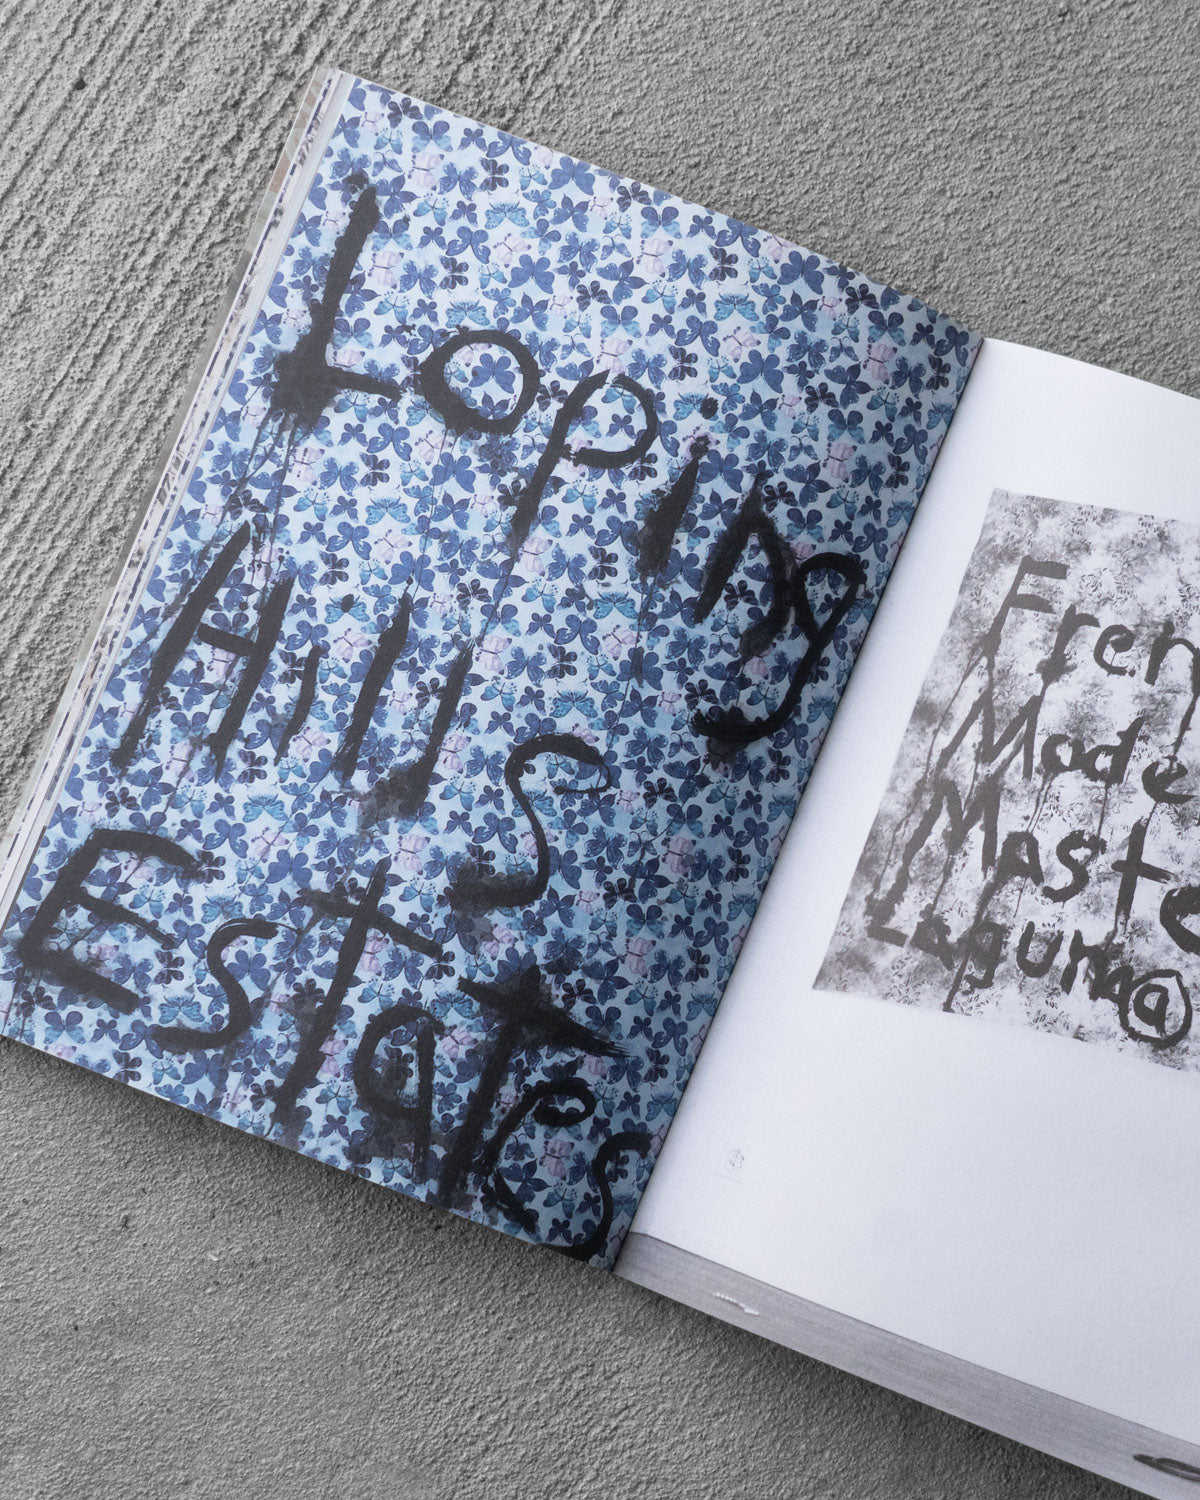 Loping
Hills
Estates
Fren
Mode
Maste
Laguna